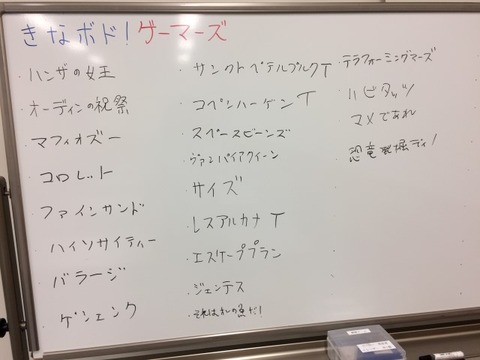 きなボド！ゲーマーズ
・ハンザの女王
・オーディンの祝祭
・マフィオズー
・コロレット
・ファインサンド
・ハイソサイティー
・バラージ
・ゲシェンク
・サンクトペテルブルクT
・コペンハーゲンT
・スペースビーンズ
・ヴァンパイアクイーン
・サイズ
・レスアルカナT
・エスケーププラン
・ジェンテス
・それはオレの魚だ！
・テラフォーミングマーズ
・ハビタッツ
・マメであれ
・恐竜発掘ディ！